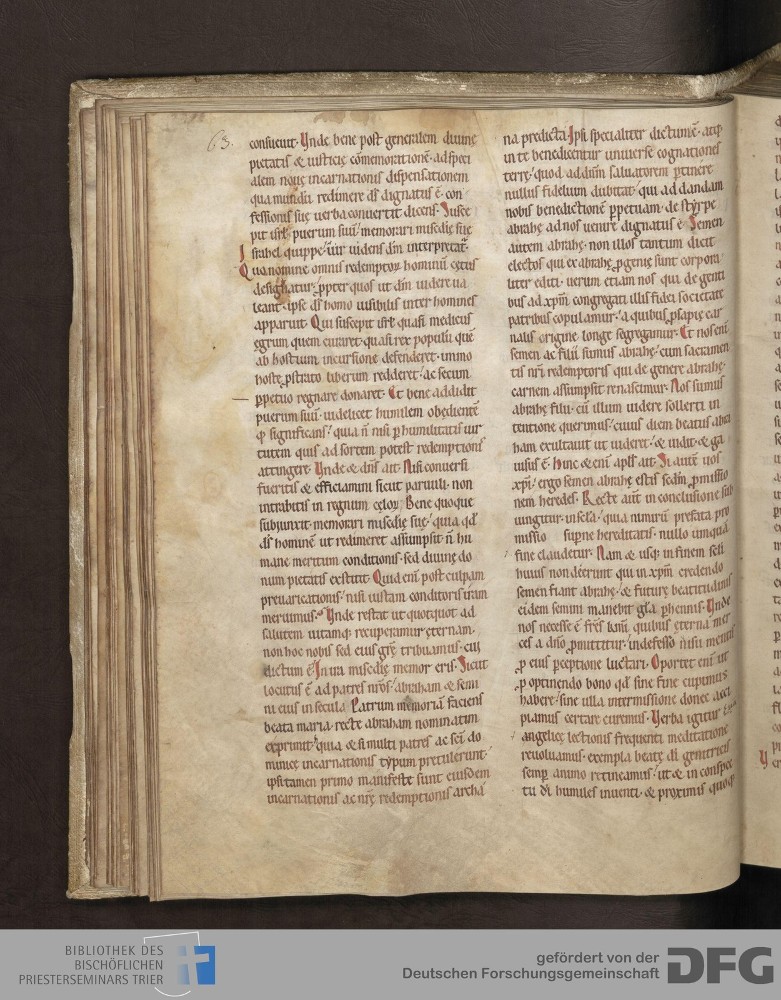 63.
consueuit. Vnde bene post generalem diuinę
pietatis & iusticię cōmemorationē. ad speci
alem nouę incarnationis dispensationem
qua mundū redimere dn̄s dignatus ē. con
fessionis suę uerba conuertit dicens. Susce
pit isrł puerum suū memorari misc̄dię suę
Israhel quippe. uir uidens dm̄ interpretat̄.
Quo nomine omnis redemptoꝝ hominū cętus
designatur. ꝓpter quos ut dm̄ uidere ua
leant. ipse ds̄ homo uisibilis inter homines
apparuit. Qui suscepit isrł quasi medicus
ęgrum quem curaret. quasi rex populū quē
ab hostium incursione defenderet. immo
hoste ꝓstrato liberum redderet. ac secum
ꝑpetuo regnare donaret. Et bene addidit
puerum suū. uidelicet humilem obędientē
ꝙ significans. quia n̄ nisi ꝑ humilitatis uir
tutem quis ad sortem potest redemptionis
attingere. Vnde & dn̄s ait. Nisi conuersi
fueritis & efficiamini sicut paruuli. non
intrabitis in regnum cęloꝝ. Bene quoque
subiunxit. memorari misc̄dię suę. quia qd̄
ds̄ hominē ut redimeret assumpsit. n̄ hu
mane meritum conditionis. sed diuinę do
num pietatis exstitit. Quid enī post culpam
preuaricationis. nisi iustam conditoris iram
meruimus. Vnde restat ut quotquot ad
salutem uitamq; recuperamur ęternam.
non hoc nobis sed eius grę̄ tribuamus. cui
dictum ē. In ira misc̄dię memor eris. Sicut
locutus ē ad patres nrōs. abraham & semi
ni eius in secula. Patrum memoriā faciens
beata maria. recte abraham nominatim
exprimit. quia & si multi patres ac sc̄i do
minicę incarnationis typum pretulerunt.
ipsi tamen primo manifeste sunt eiusdem
incarnationis ac nrę̄ redemptionis archa
na predicta. Ipsi specialiter dictum ē. atq;
in te benedicentur uniuersę cognationes
terrę. quod ad dn̄m saluatorem ꝑtinere
nullus fidelium dubitat. qui ad dandam
nobis benedictionē ꝑpetuam. de styrpe
abrahę ad nos uenire dignatus ē. Semen
autem abrahę. non illos tantum dicit
electos qui ex abrahę ꝓgenie sunt corpora
liter editi. uerum etiam nos qui de genti
bus ad xp̄m congregati illis fidei societate
patribus copulamur. a quibus ꝓsapię car
nalis origine longe segregamur. Et nos enī
semen ac filii sumus abrahę. cum sacramen
tis nr̄i redemptoris qui de genere abrahę.
carnem assumpsit renascimur. Nos sumus
abrahę filii. cū illum uidere sollerti in
tentione querimus. cuius diem beatus abra
ham exultauit ut uideret. & uidit. & ga
uisus ē. Hinc & enī apłs ait. Si autē uos
xp̄i. ergo semen abrahę estis. secdm̄ ꝓmissio
nem heredes. Recte aūt in conclusione sub
iungitur. in secła. quia nimirū prefata pro
missio supnę hereditatis. nullo umquā
fine claudetur. Nam & usq; in finem secli
huius non deerunt qui in xp̄m credendo
semen fiant abrahę. & futurę beatitudinis
eidem semini manebit głą ꝑhennis. Vnde
nos necesse ē frēs kmī. quibus ęterna mer
ces a dn̄o ꝓmittitur. indefesso nisu mentis
ꝓ eius ꝑceptione luctari. Oportet enī ut
ꝓ optinendo bono qd̄ sine fine cupimus
habere. sine ulla intermissione donec acci
piamus certare curemus. Verba igitur
angelicę lectionis frequenti meditatione
reuoluamus. exempla beatę dī genitricis
semp̄ animo retineamus. ut & in conspec
tu dī humiles inuenti. & proximis quoq;
BIBLIOTHEK DES
BISCHÖFLICHEN
PRIESTERSEMINARS TRIER
gefördert von der
Deutschen Forschungsgemeinschaft
DFG